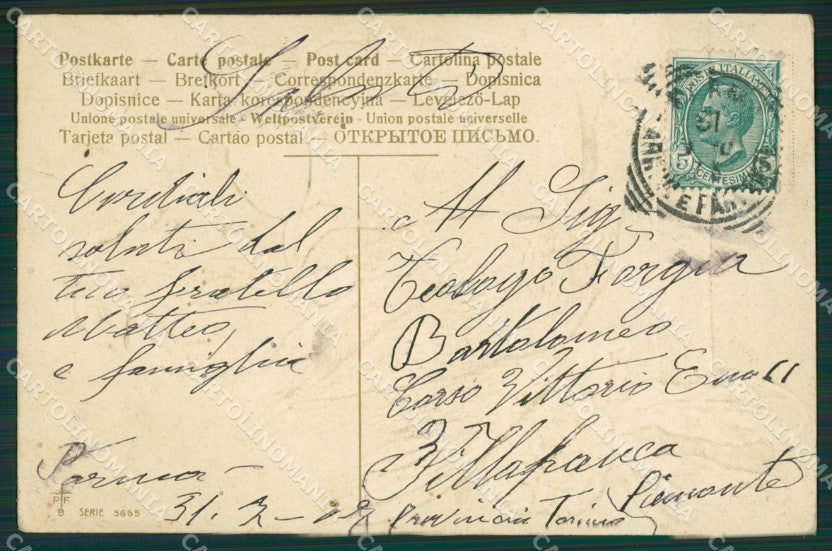 Postkarte — Carte postale — Post card — Cartolina postale
Briefkaart — Brefkort — Correspondenzkarte — Dopisnica
Dopisnice — Karta korrespondencyjna — Levelező-Lap
Unione postale universale - Weltpostverein - Union postale universelle
Tarjeta postal — Cartão postal — ОТКРЫТОЕ ПИСЬМО.
POSTE ITALIANE
5 CENTESIMI 5
Cordiali
saluti dal
tuo fratello
Matteo
e famiglia
Parma
31
Al Sig
Teologo
Bartolomeo
Corso Vittorio Eman
Villafranca
Piemonte
Provincia Torino
PF
B SERIE 5665
CARTOLINOMANIA